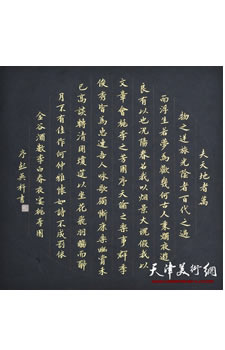 夫天地者萬
物之逆旅光陰者百代之過
而浮生若夢為歡幾何古人秉燭夜遊
良有以也況陽春召我以烟景大塊假我以
文章會桃李之芳園序天倫之樂事群季
俊秀皆為惠連吾人詠歌獨慚康樂幽賞未
已高談轉清開瓊筵以坐花飛羽觴而醉
月不有佳作何伸雅懷如詩不成罰依
金谷酒數李白春夜宴桃李園
序 英科書
天津美術網